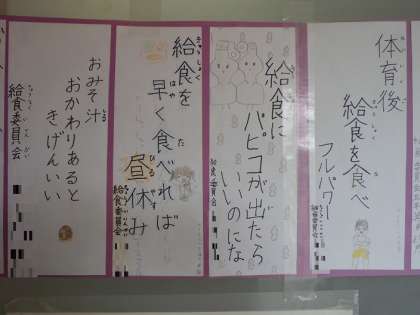 体育後
給食を食べ
フルパワー
給食委員会
給食に
パピコが出たら
いいのにな
給食委員会
給食を
早く食べれば
昼休み
給食委員会
おみそ汁
おかわりあると
きげんいい
給食委員会